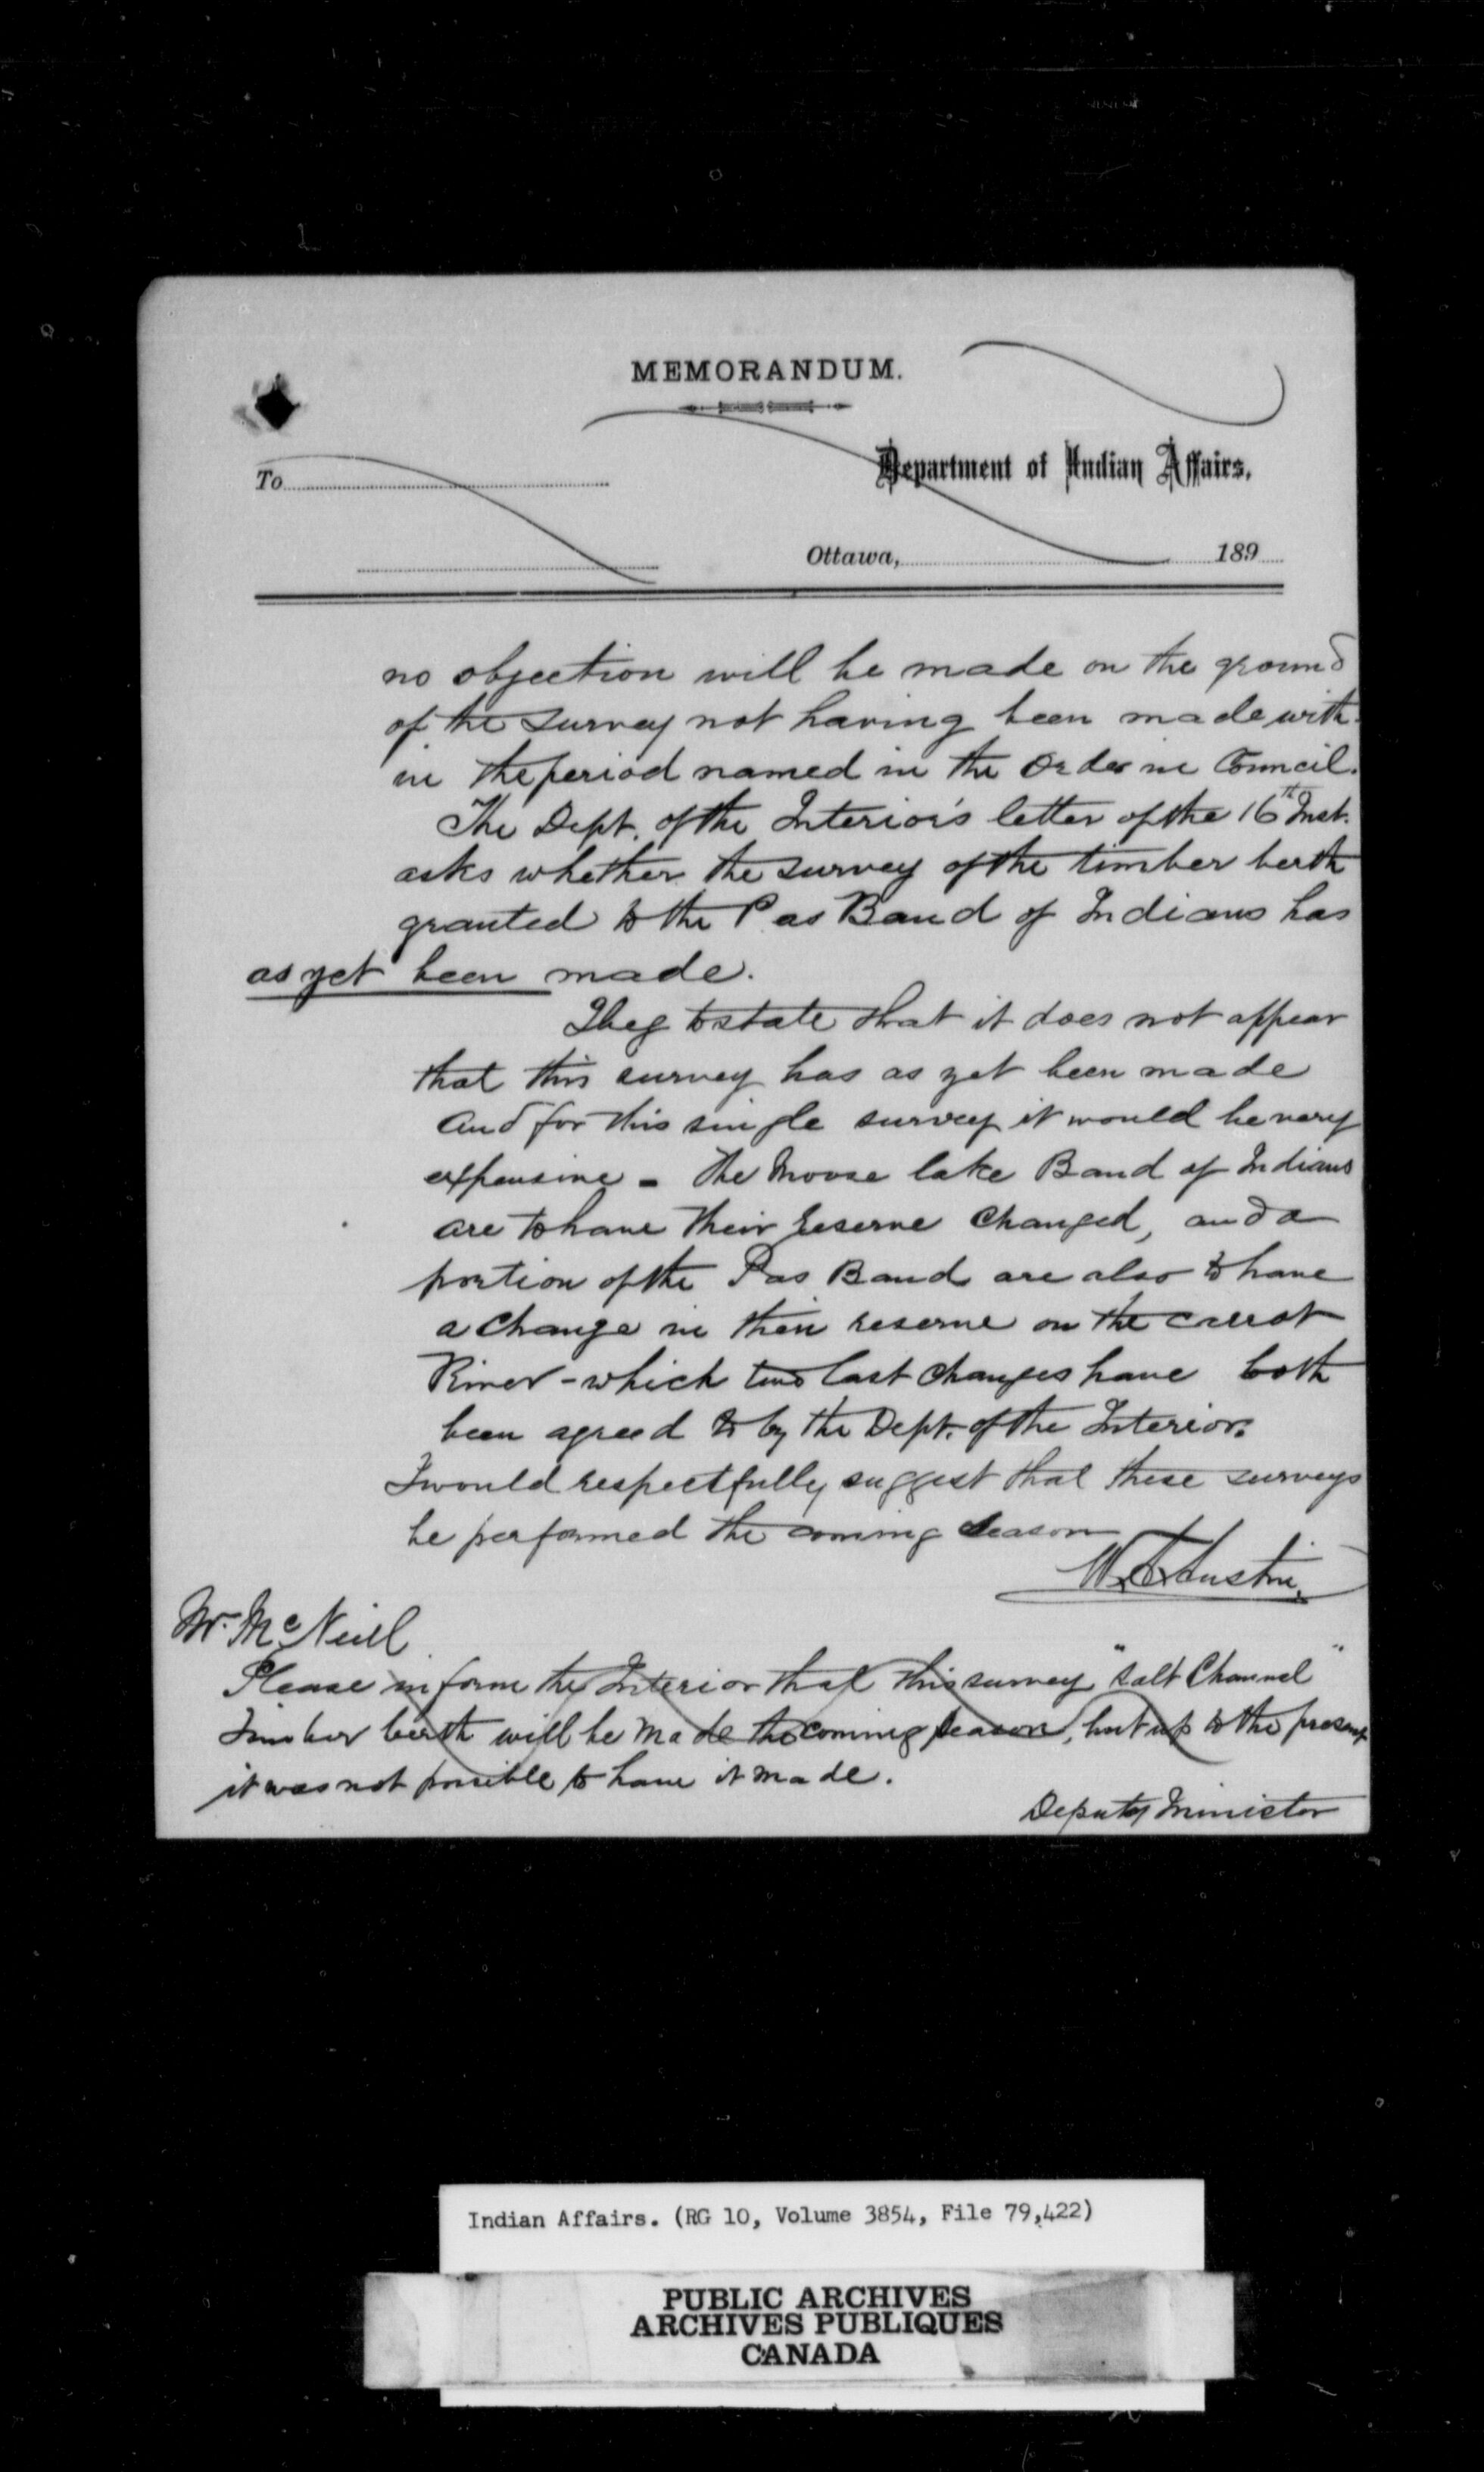 MEMORANDUM.
To
Department of Indian Affairs.
Ottawa, 189
no objection will be made on the ground
of the survey not having been made with-
in the period named in the Order in Council.
The Dept. of the Interior's letter of the 16th Inst.
asks whether the survey of the timber berth
granted to the Pas Band of Indians has
as yet been made.
I beg to state that it does not appear
that this survey has as yet been made
and for this single survey it would be very
expensive - The Moose lake Band of Indians
are to have their reserve changed, and a
portion of the Pas Band are also to have
a change in their reserve on the carrot
River - which two last changes have both
been agreed to by the Dept. of the Interior.
I would respectfully suggest that these surveys
be performed the coming season
W. A. Austin.
Mr. McNeill
Please inform the Interior that this survey "Salt Channel"
Timber berth will be made the coming season, but up to the present
it was not possible to have it made.
Deputy Minister
Indian Affairs. (RG 10, Volume 3854, File 79,422)
PUBLIC ARCHIVES
ARCHIVES PUBLIQUES
CANADA